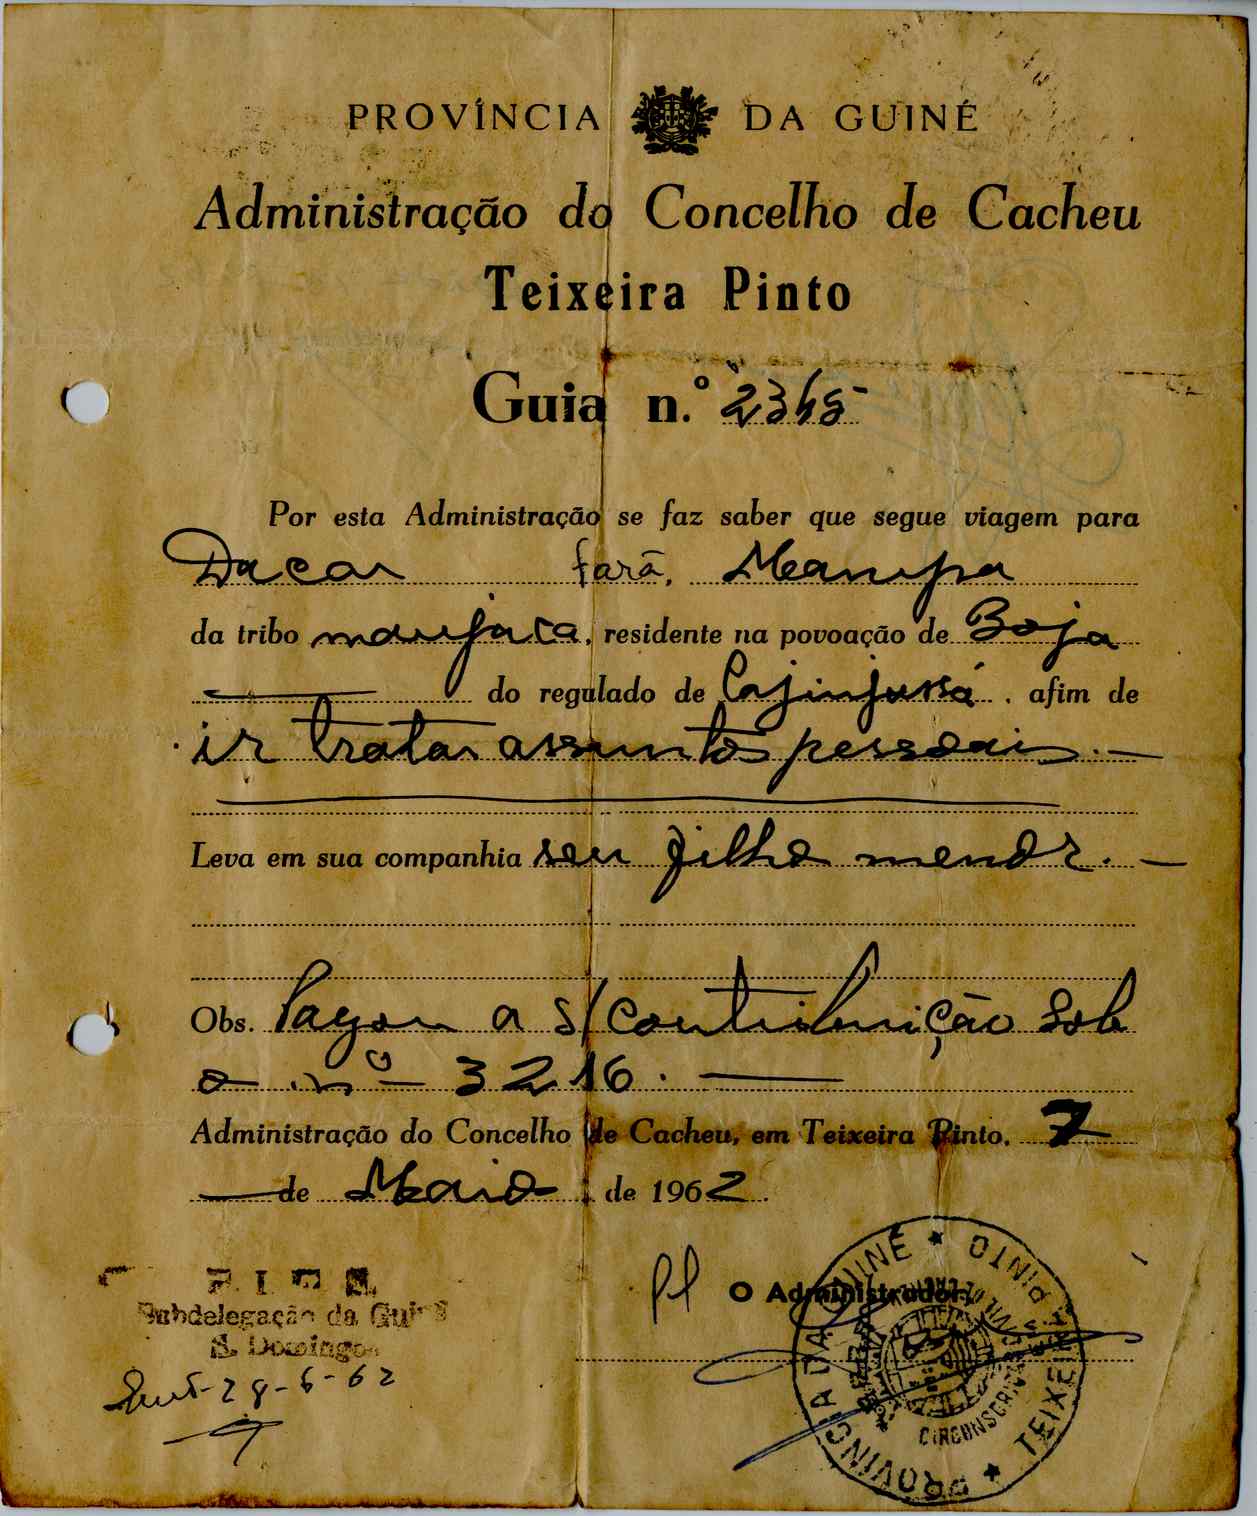 PROVÍNCIA DA GUINÉ
Administração do Concelho de Cacheu
Teixeira Pinto
Guia n.º
Por esta Administração se faz saber que segue viagem para
Dacar fará, Mampa
da tribo manjaca, residente na povoação de Boja
do regulado de Cajinjassá, afim de
ir tratar assuntos pessoais.
Leva em sua companhia seu filho menor.
Obs. Pagou a s/ contribuição sob
o nº 3216.
Administração do Concelho de Cacheu, em Teixeira Pinto, 7
de Maio de 1962.
O Administrador,
P I D E
Subdelegação da Guiné
S. Domingos
28-6-62
PROVINCIA DA GUINÉ ★ TEIXEIRA PINTO ★